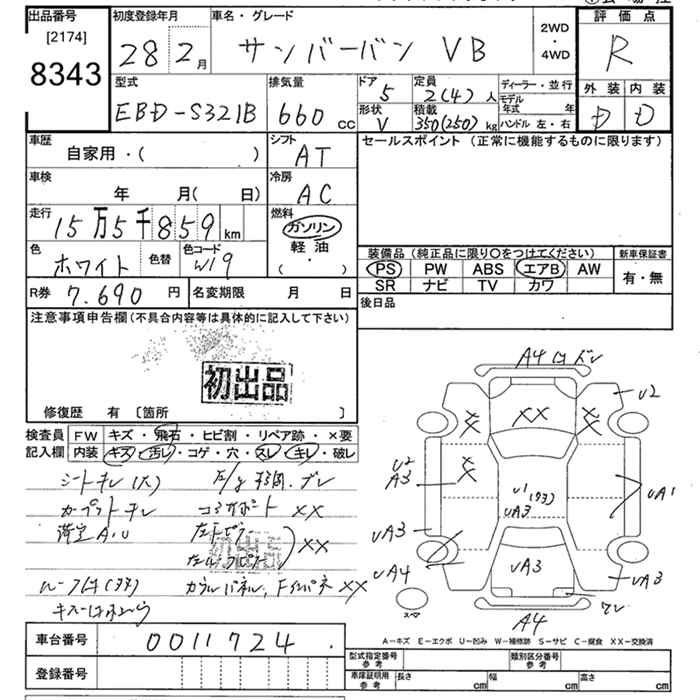 出品番号
[2174]
8343
初度登録年月
28 2月
車名・グレード
サンバーバン VB
2WD
・
4WD
評価点
R
外装 内装
D D
型式
EBD-S321B
排気量
660 cc
ドア
5
形状
V
定員
2(4)人
積載
350(250)kg
ディーラー・並行
モデル年式 年
ハンドル 左・右
車歴
自家用・( )
シフト
AT
セールスポイント（正常に機能するものに限ります）
車検
年 月(日)
冷房
AC
走行
15万5千859km
燃料
ガソリン
軽油
( ・ )
色
ホワイト
色替
色コード
W19
装備品（純正品に限り○をつけてください）
新車保証書
PS PW ABS エアB AW
SR ナビ TV カワ
有・無
R券 7.690円
名変期限 月 日
後日品
注意事項申告欄（不具合内容等は具体的に記入して下さい）
初出品
修復歴 有 〔箇所 〕
検査員記入欄
FW キズ・飛石・ヒビ割・リペア跡・×要
内装 キズ・汚レ・コゲ・穴・スレ・キレ・破レ
シートキレ(大)
カーペットキレ
XX
初出品
XX
XX
A4
XX
XX
XX
XX
U2
U2
A3
UA3
UA3
UA1
UA3
UA4
UA3
A4
スペア
車台番号
0011724
登録番号
A-キズ E-エクボ U-凹み W-補修跡 S-サビ C-腐食 XX-交換済
型式指定番号
参考
類別区分番号
参考
車庫証明用
参考
長さ cm
幅 cm
高さ cm